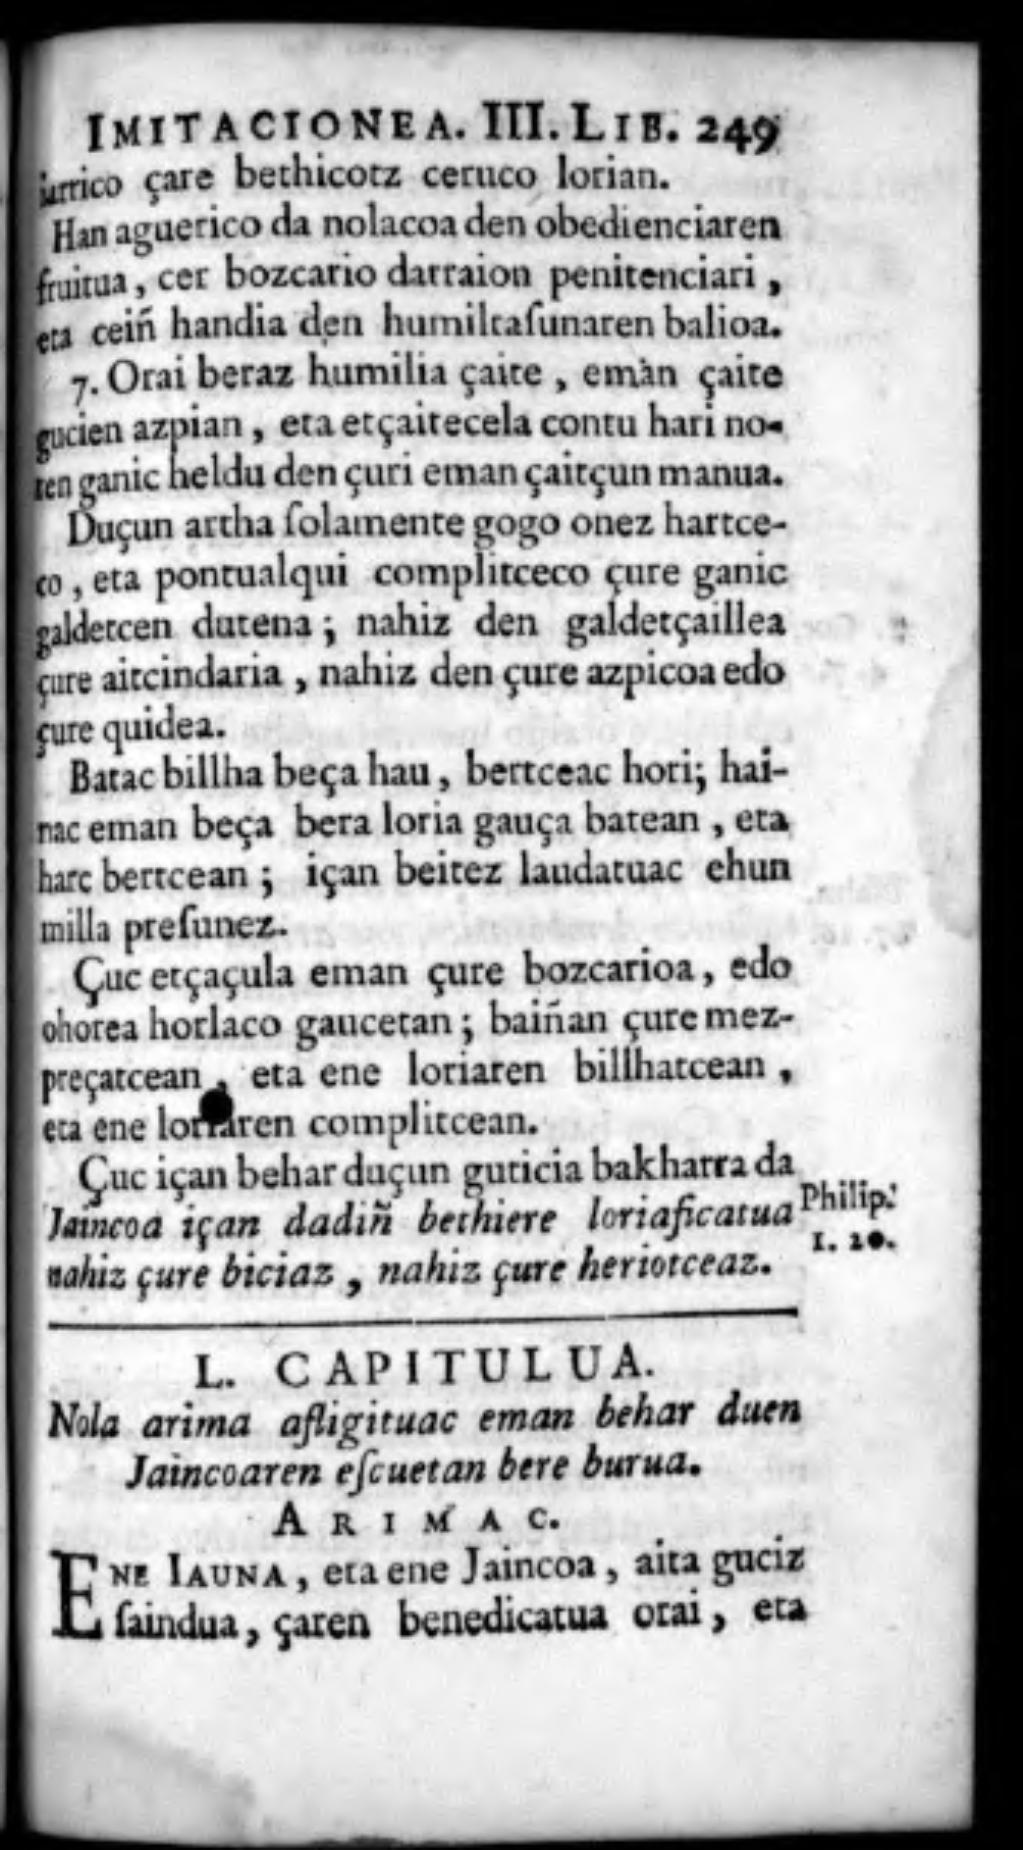 IMITACIONEA. III. LIB. 249
jarrico çare bethicotz ceruco lorian.
Han aguerico da nolacoa den obedienciaren
fruitua, cer bozcario darraion penitenciari,
eta ceiñ handia den humiltaſunaren balioa.
7. Orai beraz humilia çaite, emàn çaite
gucien azpian, eta etçaitecela contu hari no-
ren ganic heldu den çuri eman çaitçun manua.
Duçun artha ſolamente gogo onez hartce-
co, eta pontualqui complitceco çure ganic
galdetcen dutena; nahiz den galdetçaillea
çure aitcindaria, nahiz den çure azpicoa edo
çure quidea.
Batac billha beça hau, bertceac hori; hai-
nac eman beça bera loria gauça batean, eta
harc bertcean; içan beitez laudatuac ehun
milla preſunez.
Çuc etçaçula eman çure bozcarioa, edo
ohorea horlaco gaucetan; baiñan çure mez-
preçatcean, eta ene loriaren billhatcean,
eta ene loriaren complitcean.
Çuc içan behar duçun guticia bakharra da
Jaincoa içan dadiñ bethiere loriaficatua
nahiz çure biciaz, nahiz çure heriotceaz.
Philip.
1. 20.
L. CAPITULUA.
Nola arima afligituac eman behar duen
Jaincoaren eſcuetan bere burua.
ARIMAC.
ENE IAUNA, eta ene Jaincoa, aita guciz
ſaindua, çaren benedicatua orai, eta